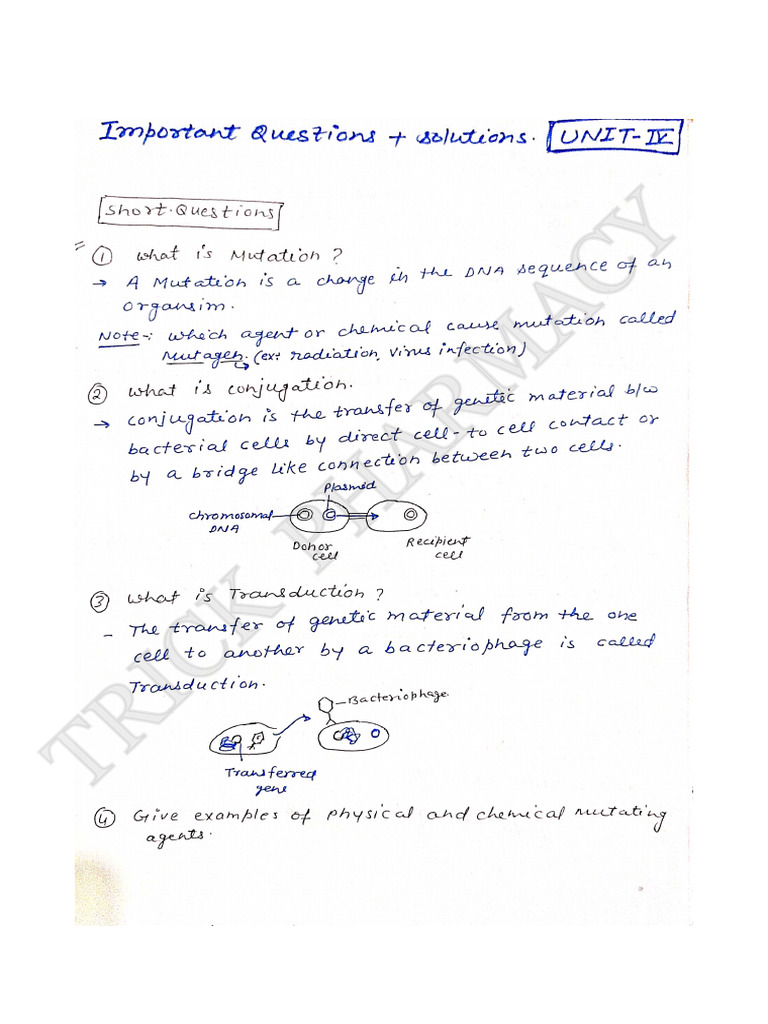 Important Questions + Solutions. UNIT-IV
Short Questions
① What is Mutation?
→ A Mutation is a change in the DNA sequence of an
organsim.
Note-: which agent or chemical cause mutation called
Mutagen. (ex: radiation, virus infection)
② what is conjugation.
→ Conjugation is the transfer of genetic material b/w
bacterial cells by direct cell-to cell contact or
by a bridge like connection between two cells.
Plasmid
Chromosomal
DNA
Donor
cell
Recipient
cell
③ What is Transduction?
- The transfer of genetic material from the one
cell to another by a bacteriophage is called
Transduction.
Bacteriophage
Transferred
gene
④ Give examples of physical and chemical mutating
agents.
TRICK PHARMACY